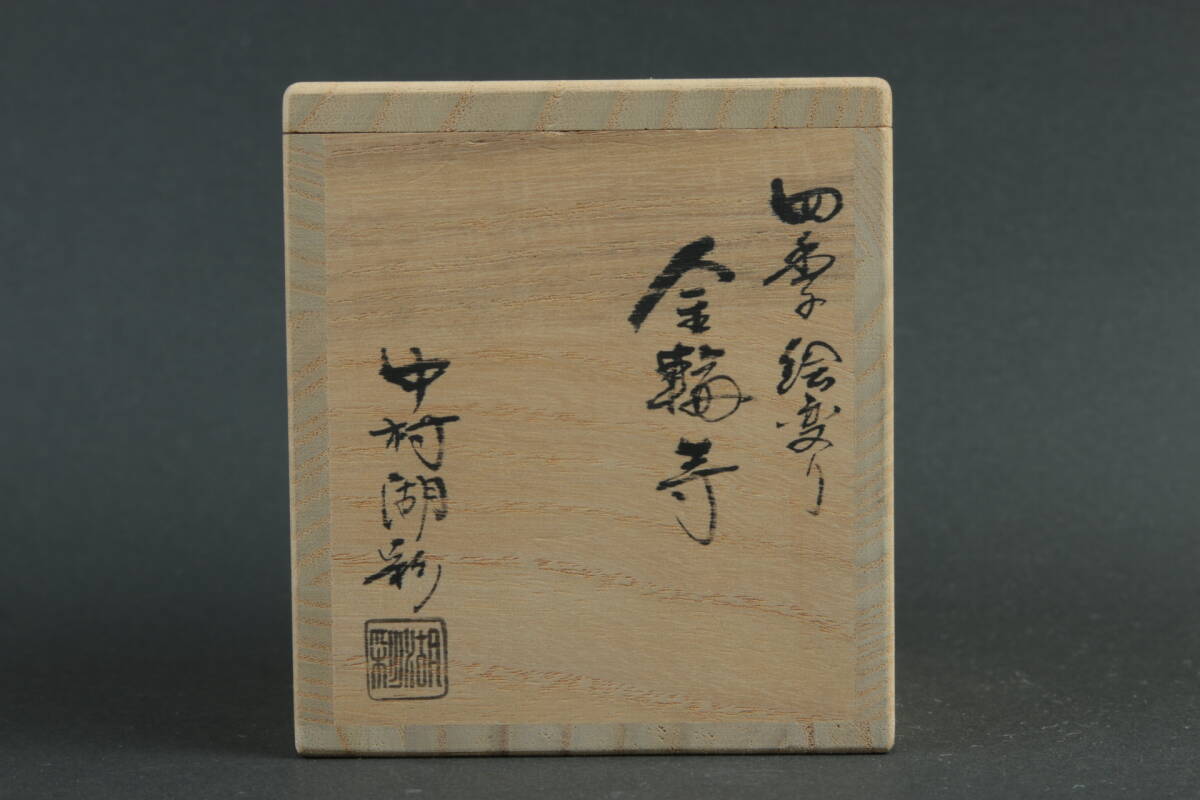 四季絵変り
金輪寺
中村湖彩
湖彩